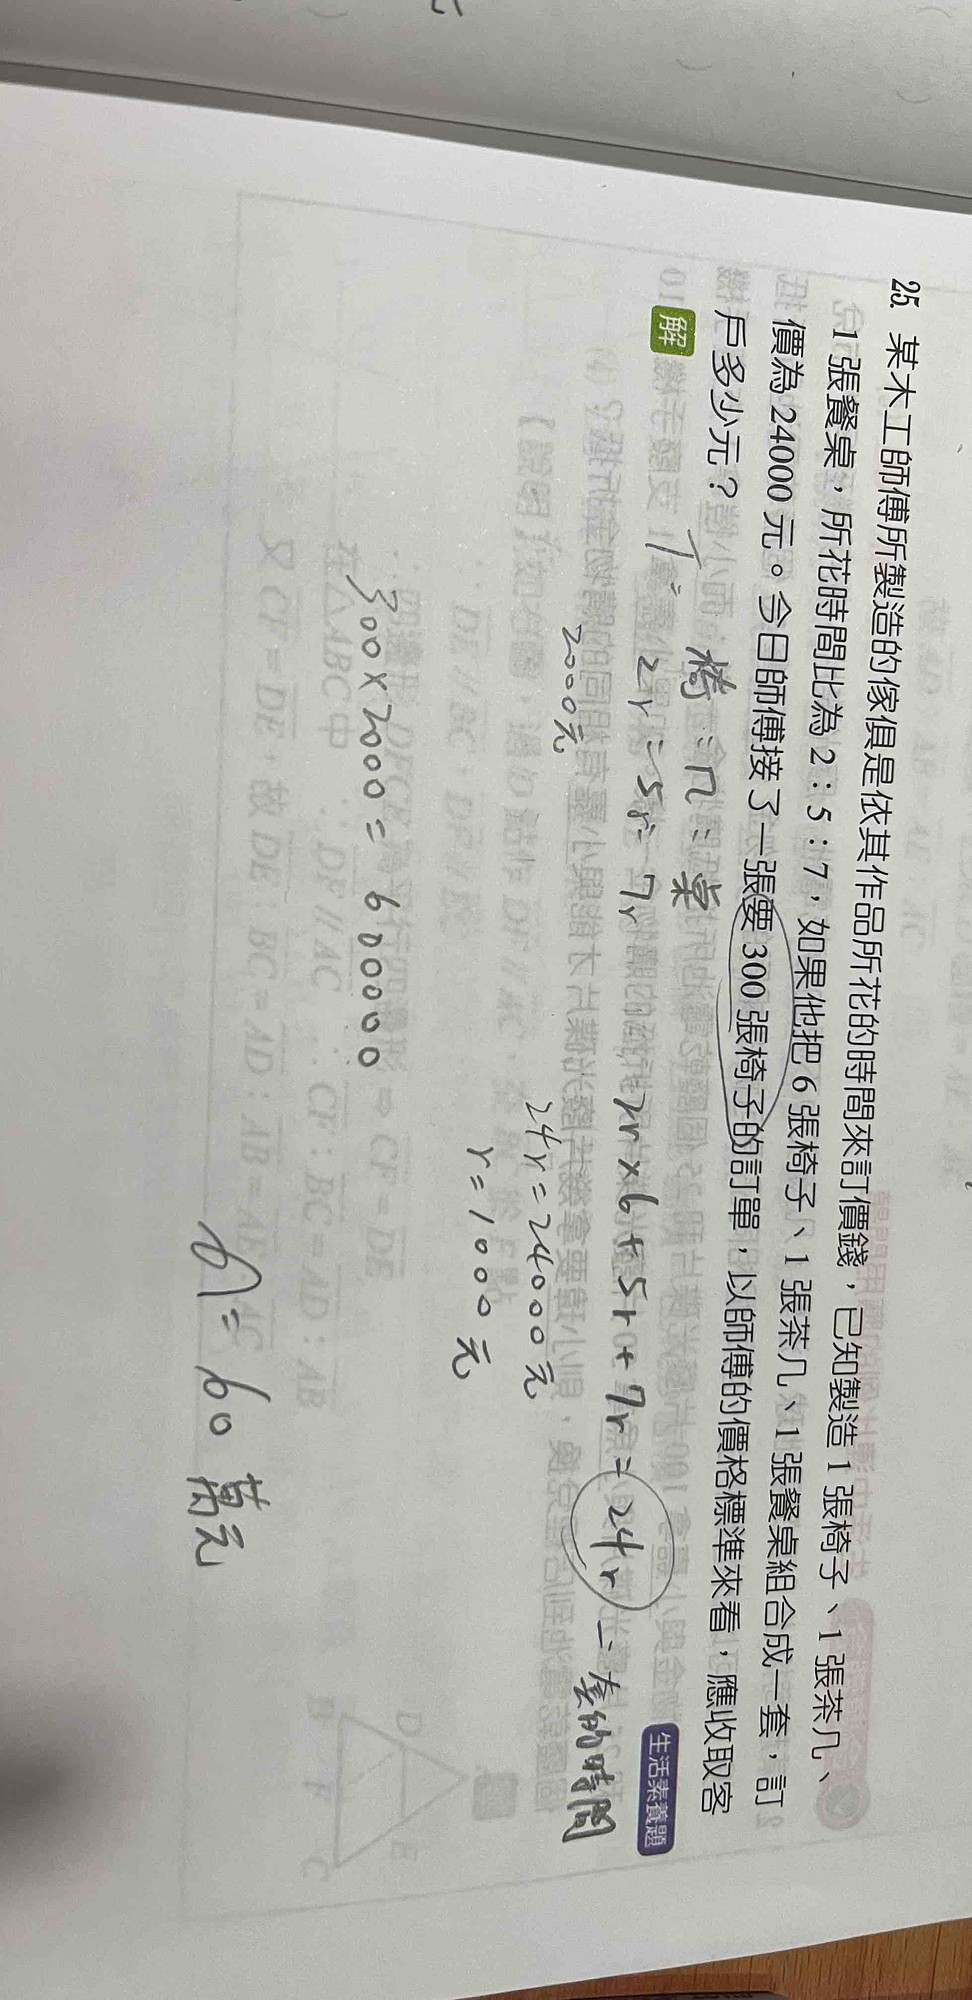 25. 某木工師傅所製造的傢俱是依其作品所花的時間來訂價錢，已知製造 1 張椅子、1 張茶几、
1 張餐桌，所花時間比為 2：5：7，如果他把 6 張椅子、1 張茶几、1 張餐桌組合成一套，訂
價為 24000 元。今日師傅接了一張要 300 張椅子的訂單，以師傅的價格標準來看，應收取客
戶多少元？
生活素養題
解
椅：几：桌
2r：5r：7r
2000元
2r×6+5r+7r=24r 一套的時間
24r=24000元
r=1000元
300×2000=600000
A=60萬元